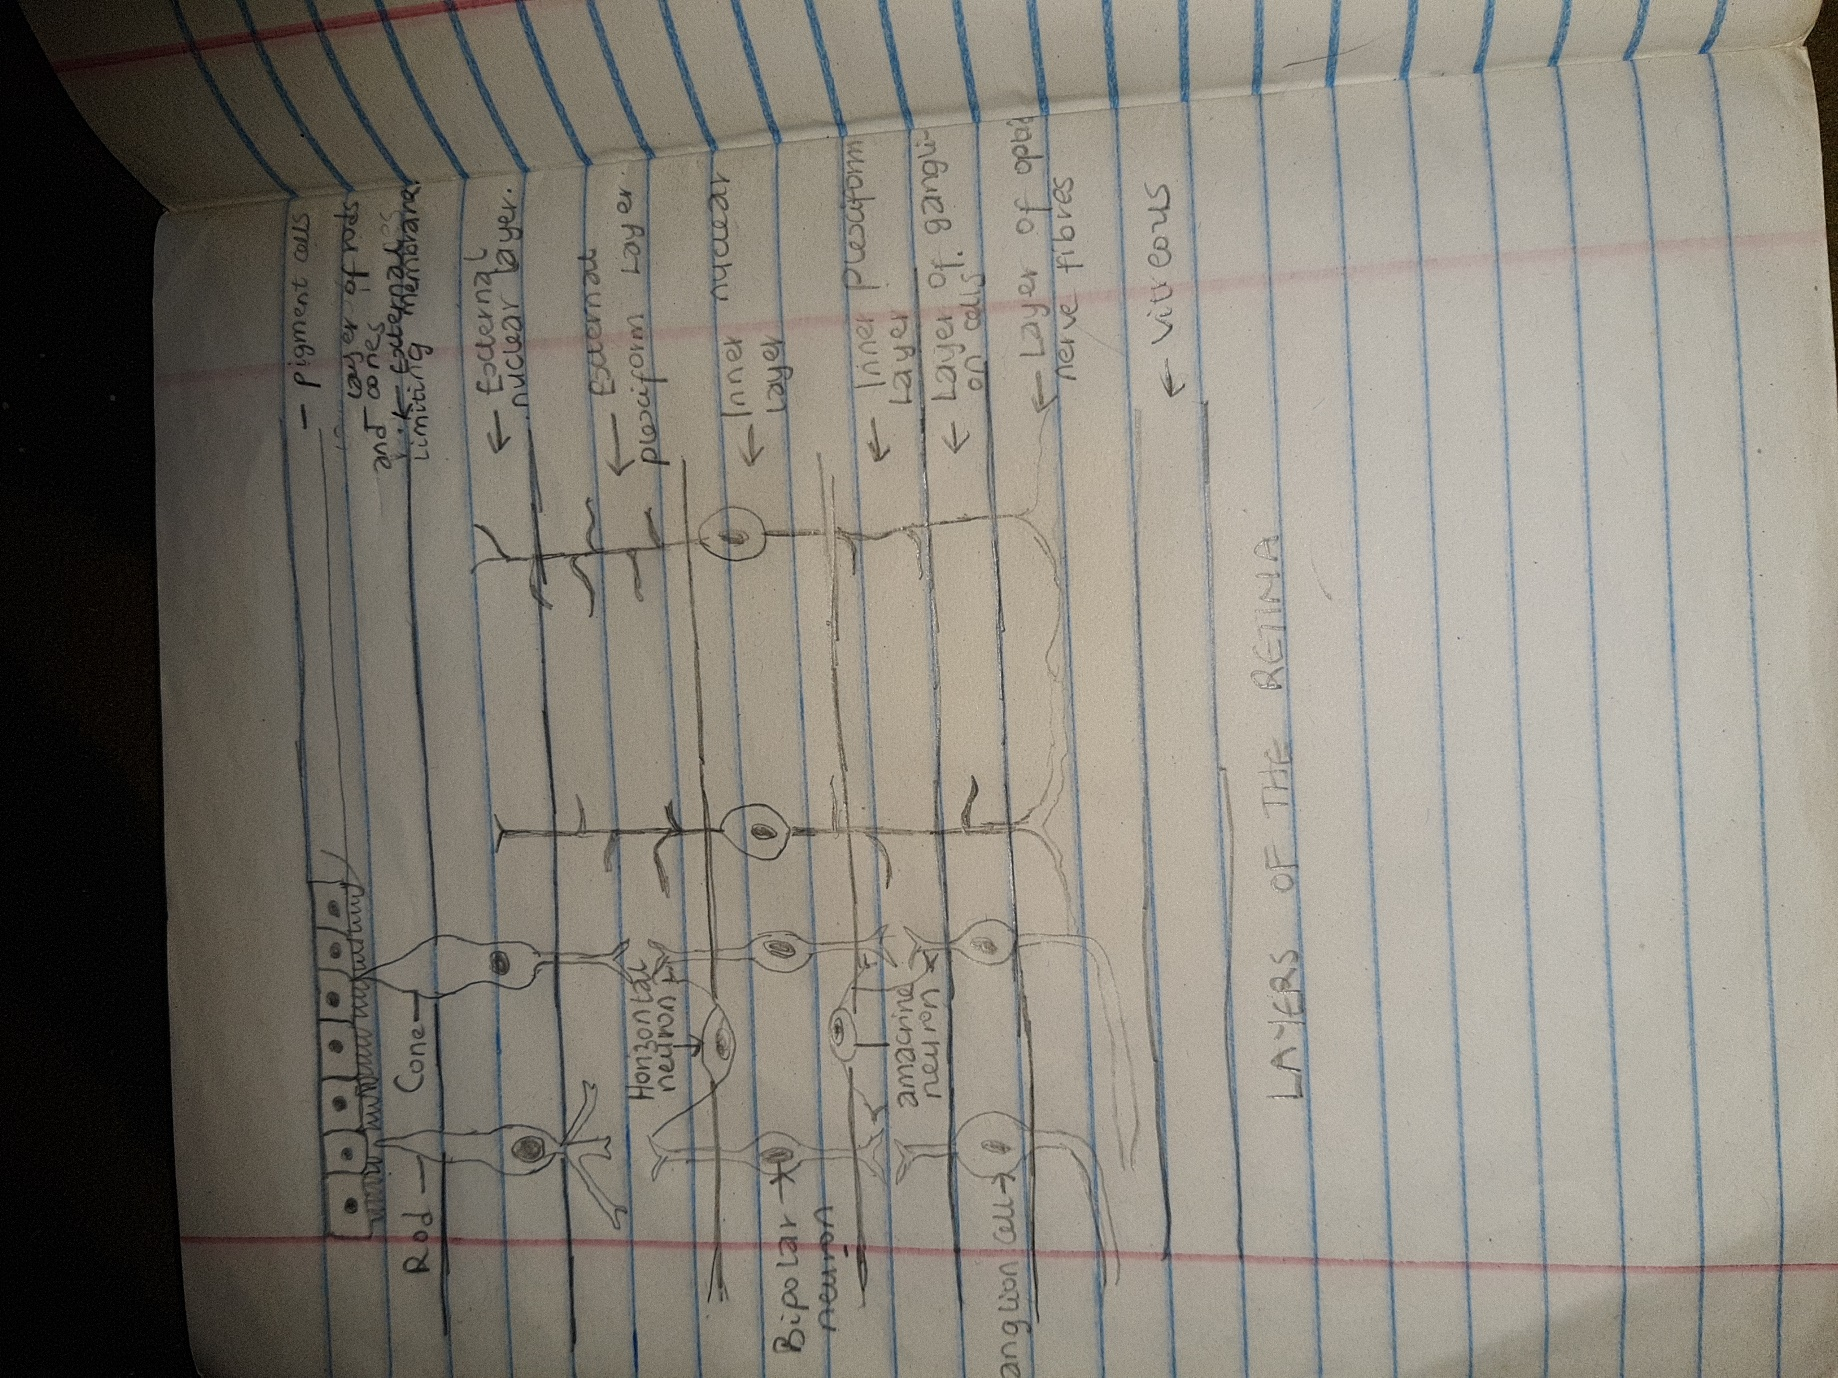 - Pigment cells
Layer of rods
and cones
← External
Limiting membrane
← External
nuclear layer.
← External
plexiform Layer.
← Inner nuclear
Layer
← Inner plexiform
Layer
← Layer of gangli-
on cells.
← Layer of optic
nerve fibres
← Vitreous
Rod
Cone
Horizontal
neuron
Bipolar
neuron
amacrine
neuron
anglion cell
LAYERS OF THE RETINA